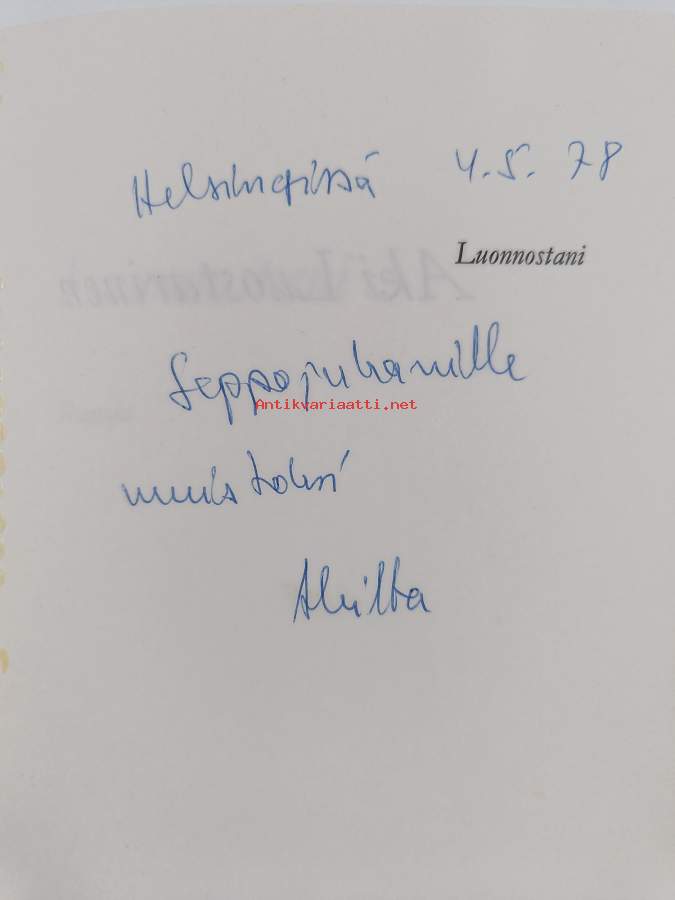 Helsingissä 4.5.78
Luonnostani
Aki Luostarinen
Seppojuhanille
Antikvariaatti.net
muistoksi
Akilta